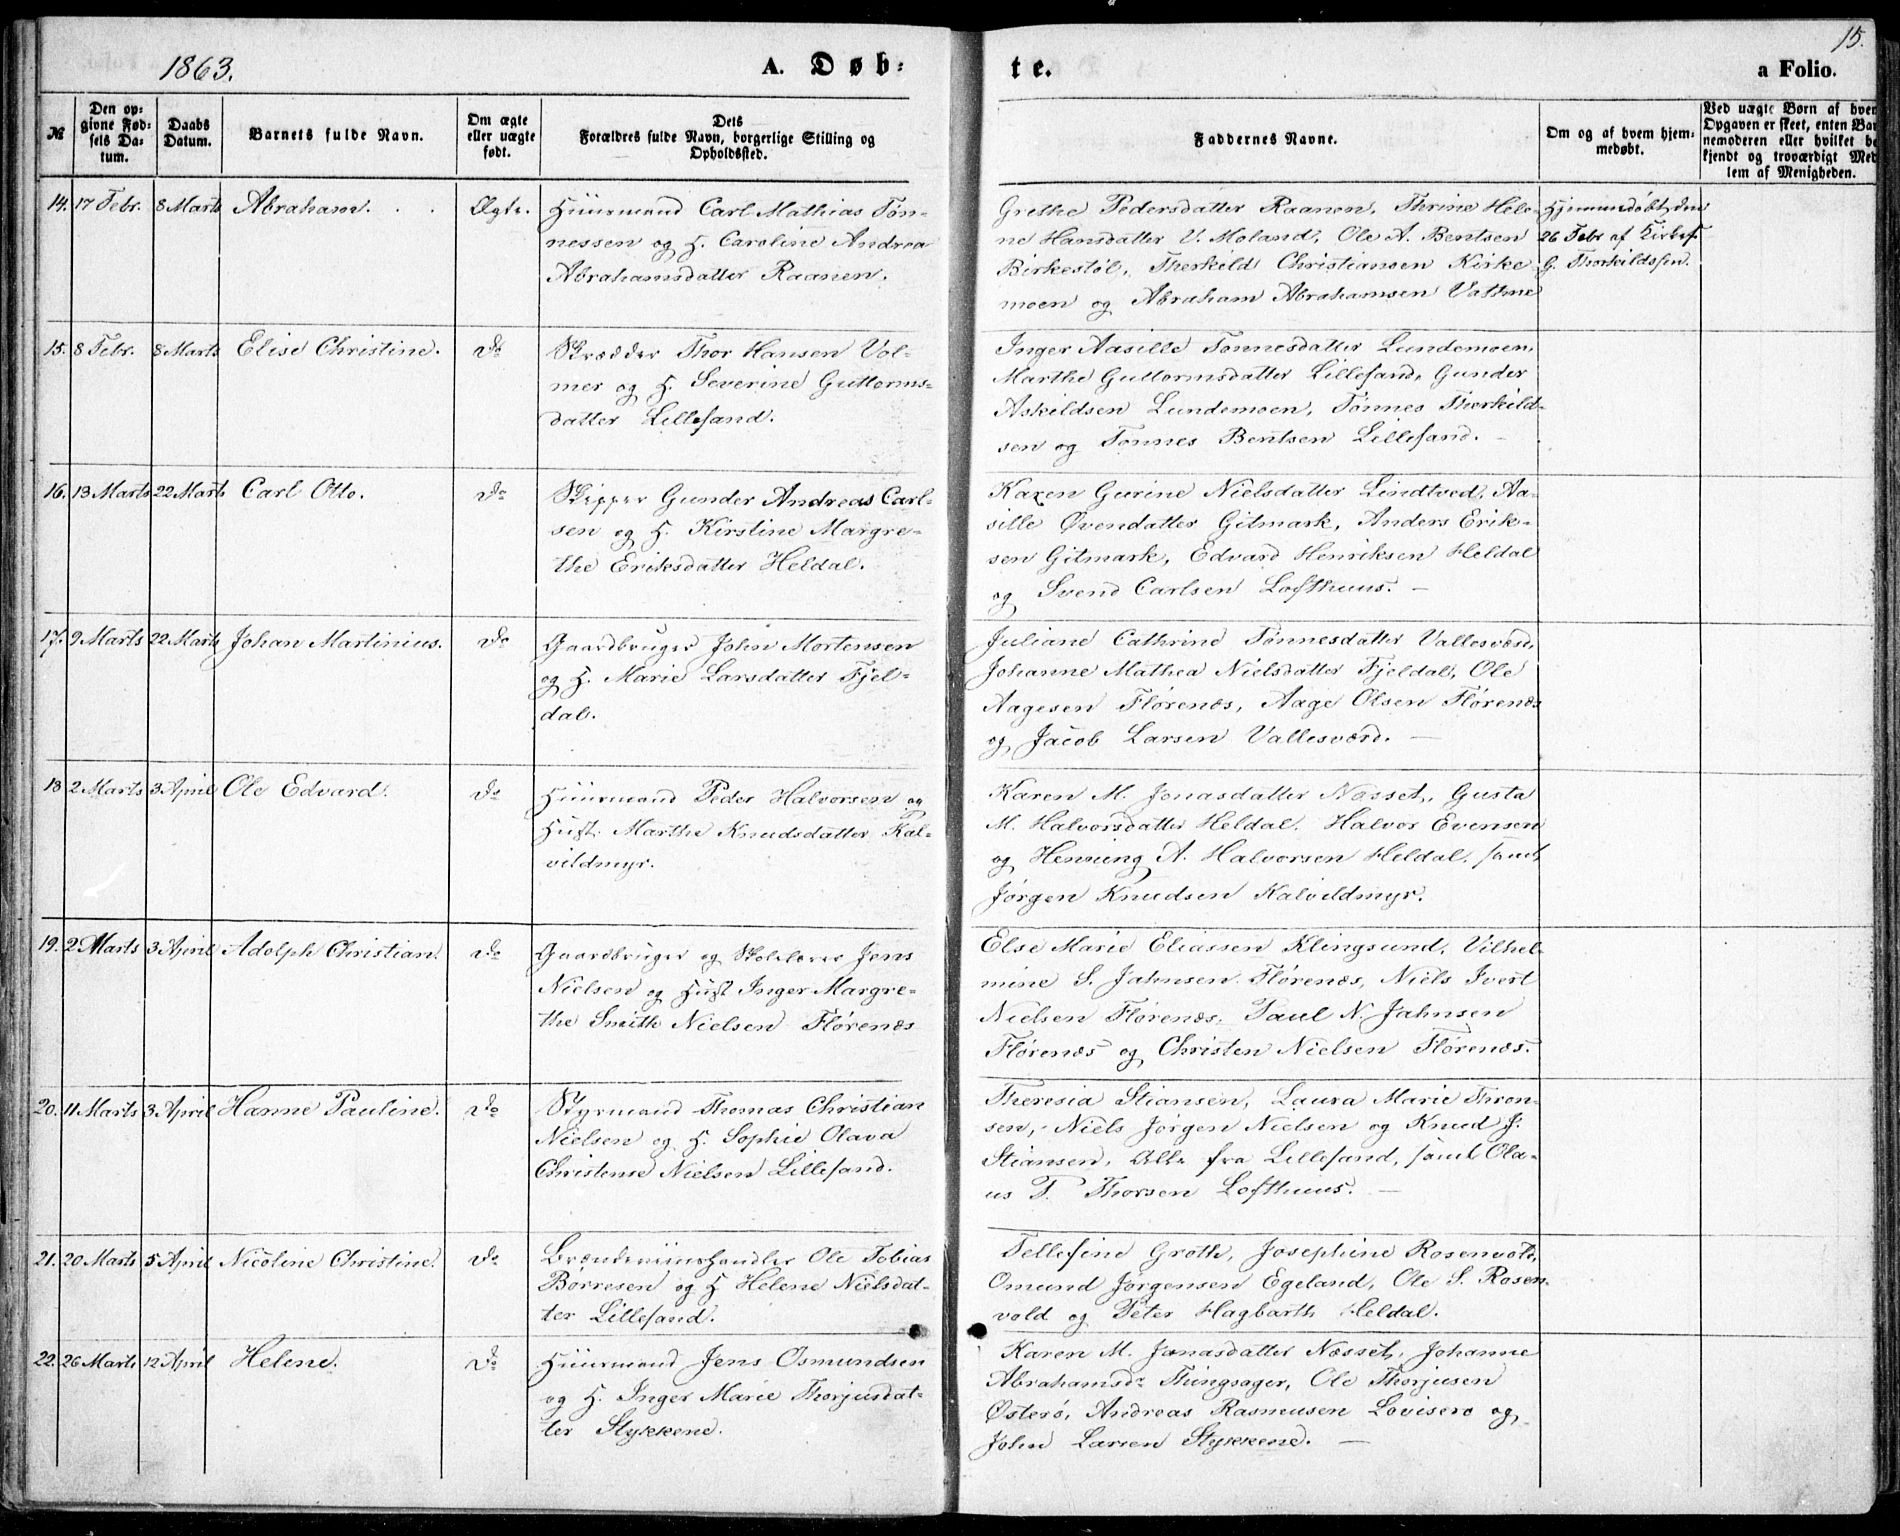 1863.
A. Døb:
te.
15.
a Folio.
№
Den op:
givne Fød:
sels Da:
tum.
Daabs
Datum.
Barnets fulde Navn.
Om ægte
eller uægte
født.
Dets
Forældres fulde Navn, borgerlige Stilling og
Opholdssted.
Faddernes Navne.
Om og af hvem hjem:
medøbt.
Ved uægte Børn af hvem
Opgaven er skeet, enten Bar
nemoderen eller hvilket be
kjendt og troværdigt Med
lem af Menigheden.
14. 17 Febr. 8 Marts Abraham. Ægte.
Huusmand Carl Mathias Tøn-
nessen og H. Caroline Andrea
Abrahamsdatter Raanen.
Grethe Pedersdatter Raanen, Thrine Hele-
ne Hansdatter V. Moland, Ole A. Bentsen
Birkestøl, Therkild Christiansen Kirke-
moen og Abraham Abrahamsen Vathne
Hjemmedøbt den
26 Febr af Kirkes.
G. Therkildssen.
15. 8 Febr. 8 Marts Elise Christine. Do
Skrædder Thor Hansen Vol-
mer og H. Severine Guttorms-
datter Lillesand.
Inger Aasille Tønnesdatter Lundemoen,
Marthe Guttormsdatter Lillesand, Gunder
Askildsen Lundemoen, Tønnes Therkild-
sen og Tønnes Bentsen Lillesand. –
16. 13 Marts 22 Marts Carl Otto. Do
Skipper Gunder Andreas Carl-
sen og H. Kirstine Margre-
the Eriksdatter Heldal.
Karen Gurine Nielsdatter Lindtved, Aa-
sille Øvendatter Gitmark, Anders Erik-
sen Gitmark, Edvard Henriksen Heldal
og Svend Carlsen Lofthuus. –
17. 9 Marts 22 Marts Johan Martinius. Do
Gaardbruger John Mortensen
og H. Marie Larsdatter Fjel-
dal.
Juliane Cathrine Tønnesdatter Vallesværd,
Johanne Mathea Nielsdatter Fjeldal, Ole
Aagesen Flørenæs, Aage Olsen Flørenæs
og Jacob Larsen Vallesværd. –
18 2 Marts 3 April Ole Edvard. Do
Huusmand Peder Halvorsen og
Hust. Marthe Knudsdatter Kal-
vildmyr.
Karen M. Jonasdatter Næsset, Gusta
M. Halvorsdatter Heldal, Halvor Evensen
og Henning A. Halvorsen Heldal, samt
Jørgen Knudsen Kalvildmyr.
19. 2 Marts 3 April Adolph Christian. Do
Gaardbruger og Skolelærer Jens
Nielsen og Hust Inger Margre-
the Smith Nielsen Flørenæs
Else Marie Eliassen Klingsund, Vilhel-
mine S. Jahnsen Flørenæs, Niels Ivert
Nielsen Flørenæs, Paul N. Jahnsen
Flørenæs og Christen Nielsen Flørenæs.
20. 11 Marts 3 April Hanne Pauline. Do
Styrmand Thomas Christian
Nielsen og H. Sophie Olava
Christense Nielsen Lillesand.
Theresia Stiansen, Laura Marie Thron-
sen, Niels Jørgen Nielsen og Knud J.
Stiansen, Alle fra Lillesand, samt Ola-
us T. Thorsen Lofthuus. –
21. 20 Marts 5 April Nicoline Christine. Do
Brændeviinshandler Ole Tobias
Børresen og H Helene Nielsdat-
ter Lillesand.
Tellefine Groth, Josephine Rosenvold,
Omund Jørgensen Egeland, Ole S. Rosen-
vold og Peter Hagbarth Heldal.
22. 26 Marts 12 April Helene. Do
Huusmand Jens Osmundsen
og H. Inger Marie Thorjusdat-
ter Stykkene.
Karen M. Jonasdatter Næsset, Johanne
Abrahamsdr Thingsager, Ole Thorjusen
Østerø, Andreas Rasmusen Lovisero og
John Larsen Stykkene. –